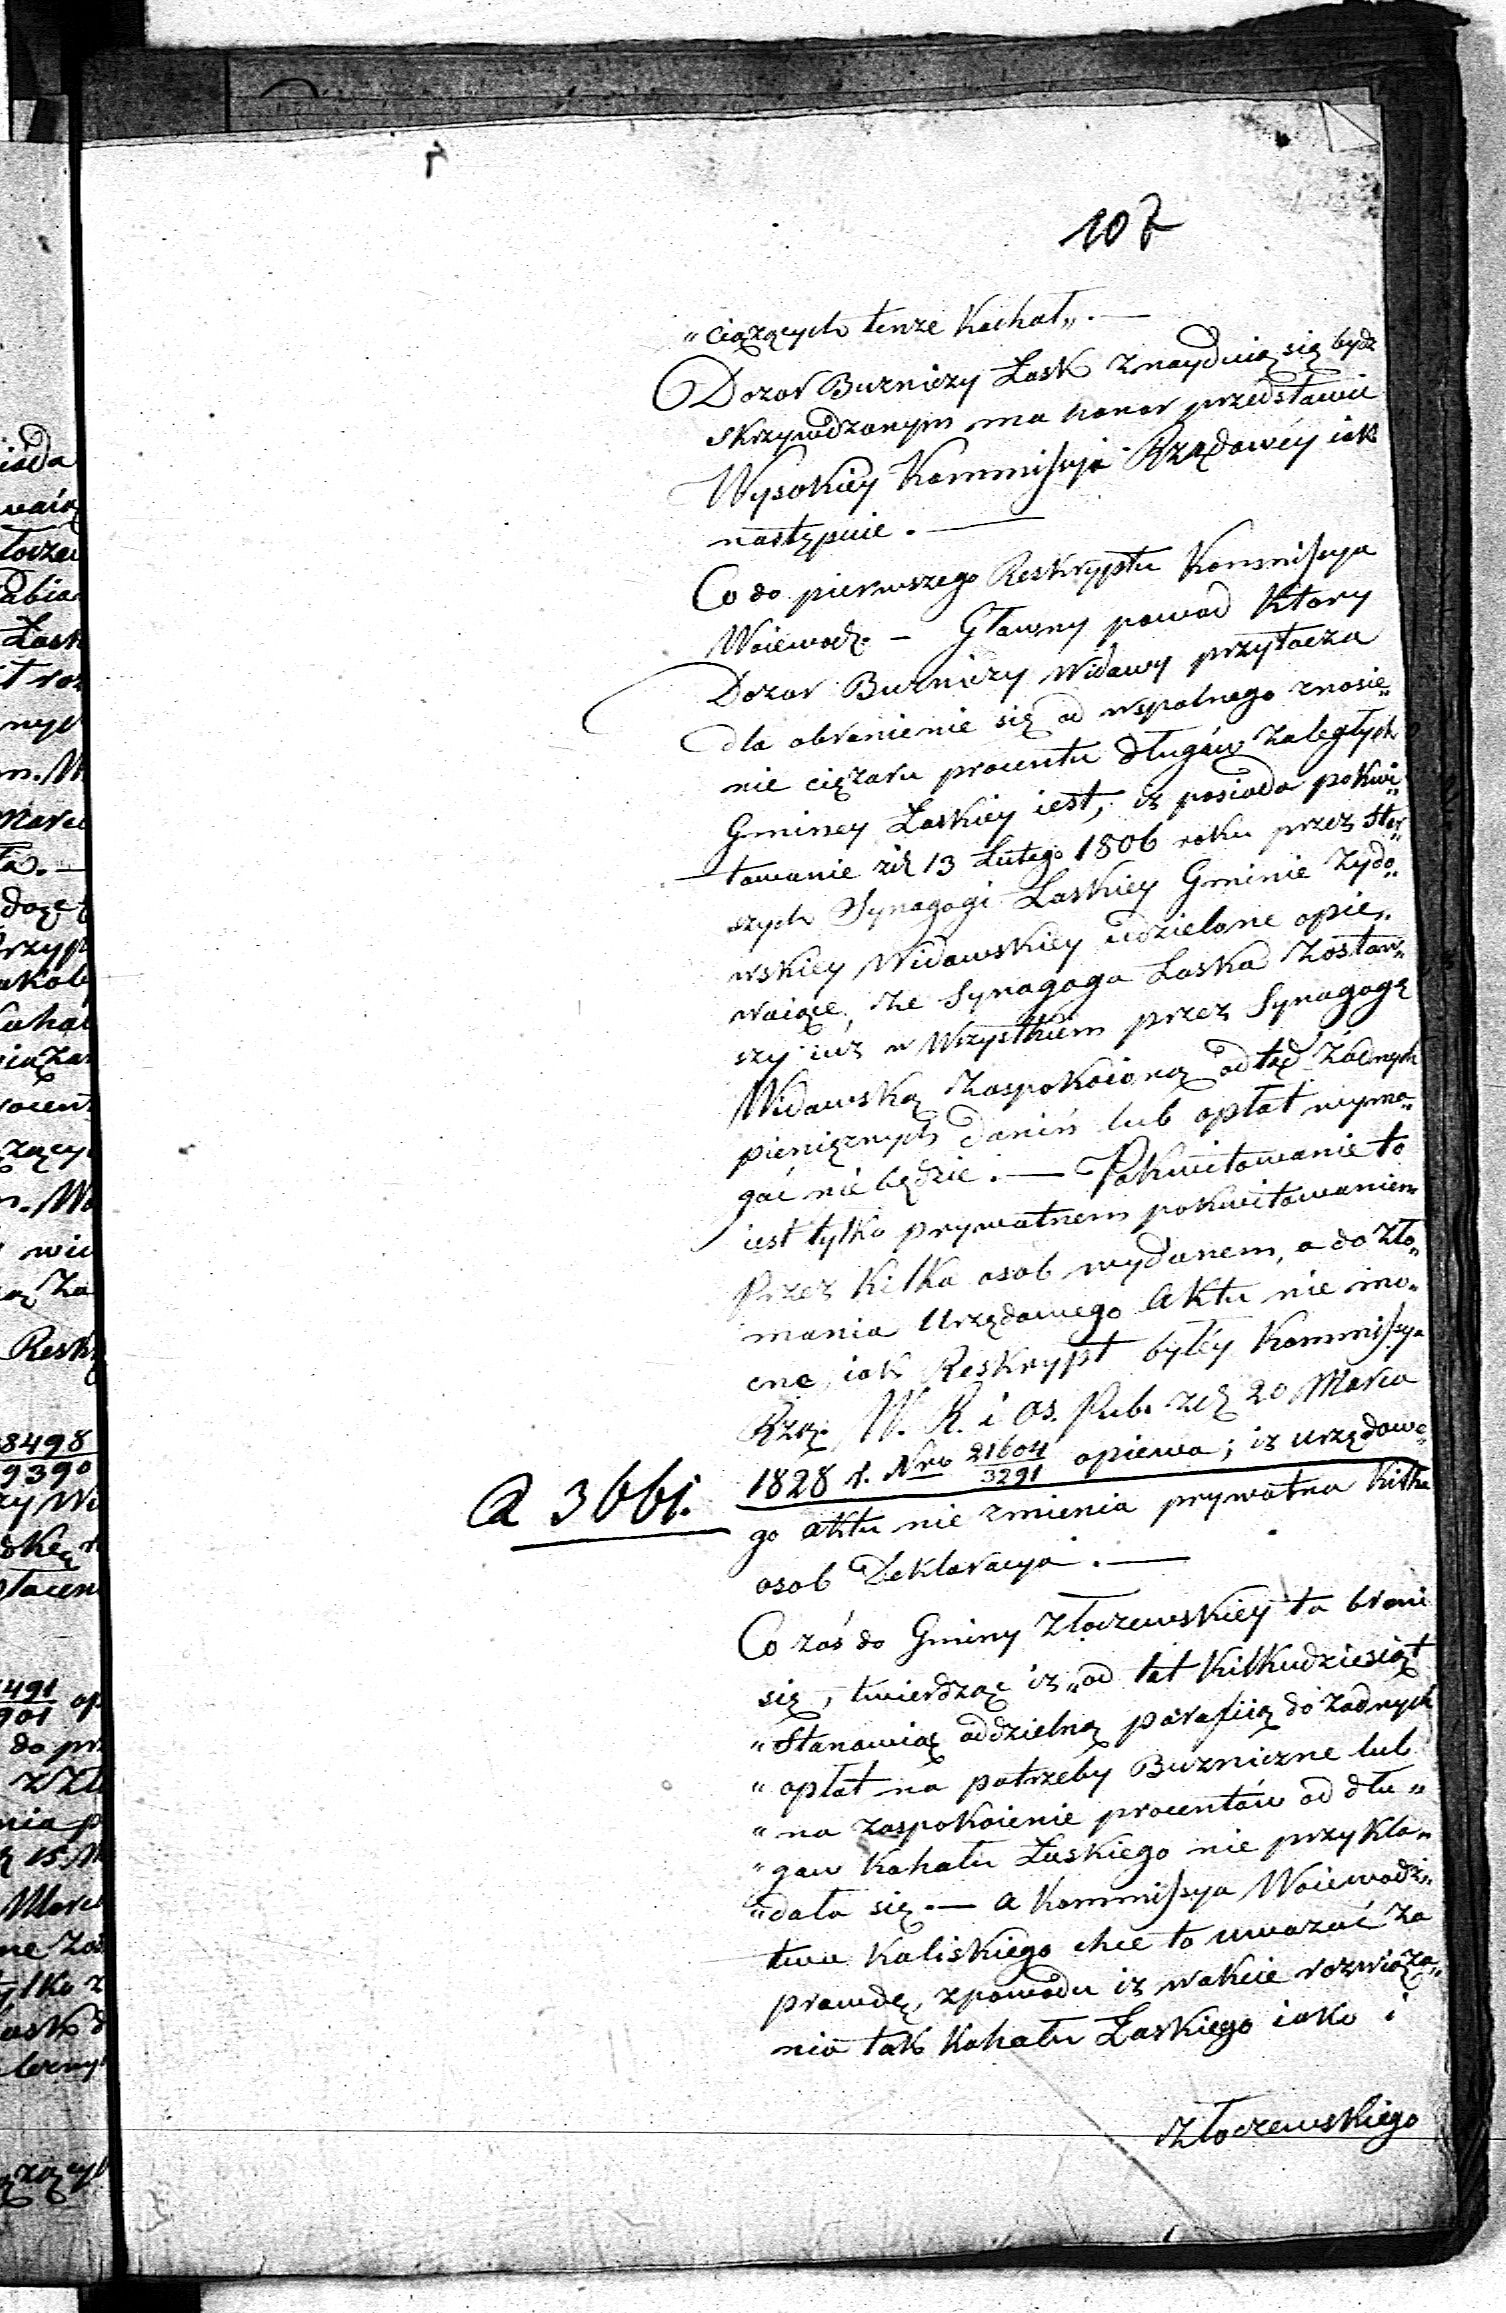 107
„ciążących tenże Kachał„. —
Dozor Buzniczy Łask znayduią się bydz
skrzywdzonym ma honor przedstawić
Wysokiey Kommissyi Rządowéy iak
następuie. —
Co do pierwszego Reskryptu Kommissya
Woiewodz. — Głowny powod Ktory
Dozor Buzniczy Widawy przytacza
dla obronienie się od wspolnego znosie„
nie ciężaru procentu długów zaległych
Gminney Łaskiey iest, iz posiada pokwi„
towanie zd 13 Lutego 1806 roku przez Star„
szych Synagogi Łaskiey Gminie Zydo„
wskiey Widawskiey udzielone opie„
waiące, że Synagoga Łaska zostaw„
szy iuż w wszystkiem przez Synagogę
Widawską zaspokoioną odtąd żadnych
pieniężnych danin lub opłat wyma„
gać nie będzie. — Pokwitowanie to
iest tylko prywatnem pokwitowaniem
przez kilka osob wydanem, a do zła„
mania Urzędowego Aktu nie mo„
cne, iak Reskrypt byłéy Kommissyi
Rzą. W. R. i Os. Pub. zd 20 Marca
1828 r. Nro 21604/3291 opiewa; iz urzędowe„
a 366i.
go aktu nie zmienia prywatna kilku
osob Deklaracya. —
Co zaś do Gminy Złoczewskiey ta broni
się, twierdząc iz „od lat kilkudziesiąt
„Stanowiąc oddzielną parafiią do żadnych
„opłat na potrzeby Buzniczne lub
„na zaspokoienie procentów od dłu„
„gow Kahału Łaskiego nie przykła„
„dała się. — a Kommissya Woiewodz„
twa Kaliskiego chce to uważać za
prawdę, z powodu iz w akcie rozwiąza„
nia tak Kahału Łaskiego iako i
Złoczewskiego